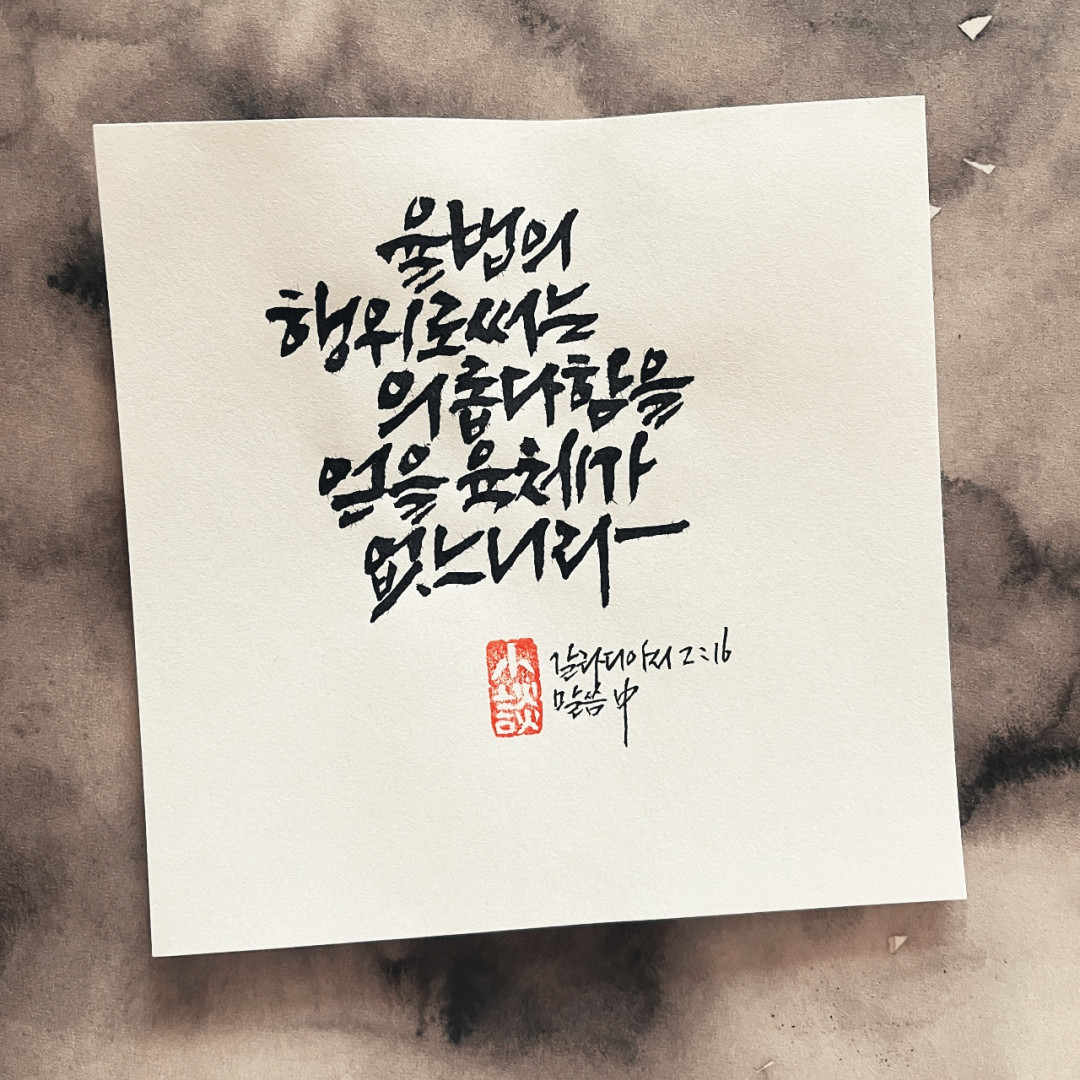 율법의
행위로써는
의롭다함을
얻을 육체가
없느니라
갈라디아서 2:16
말씀 中